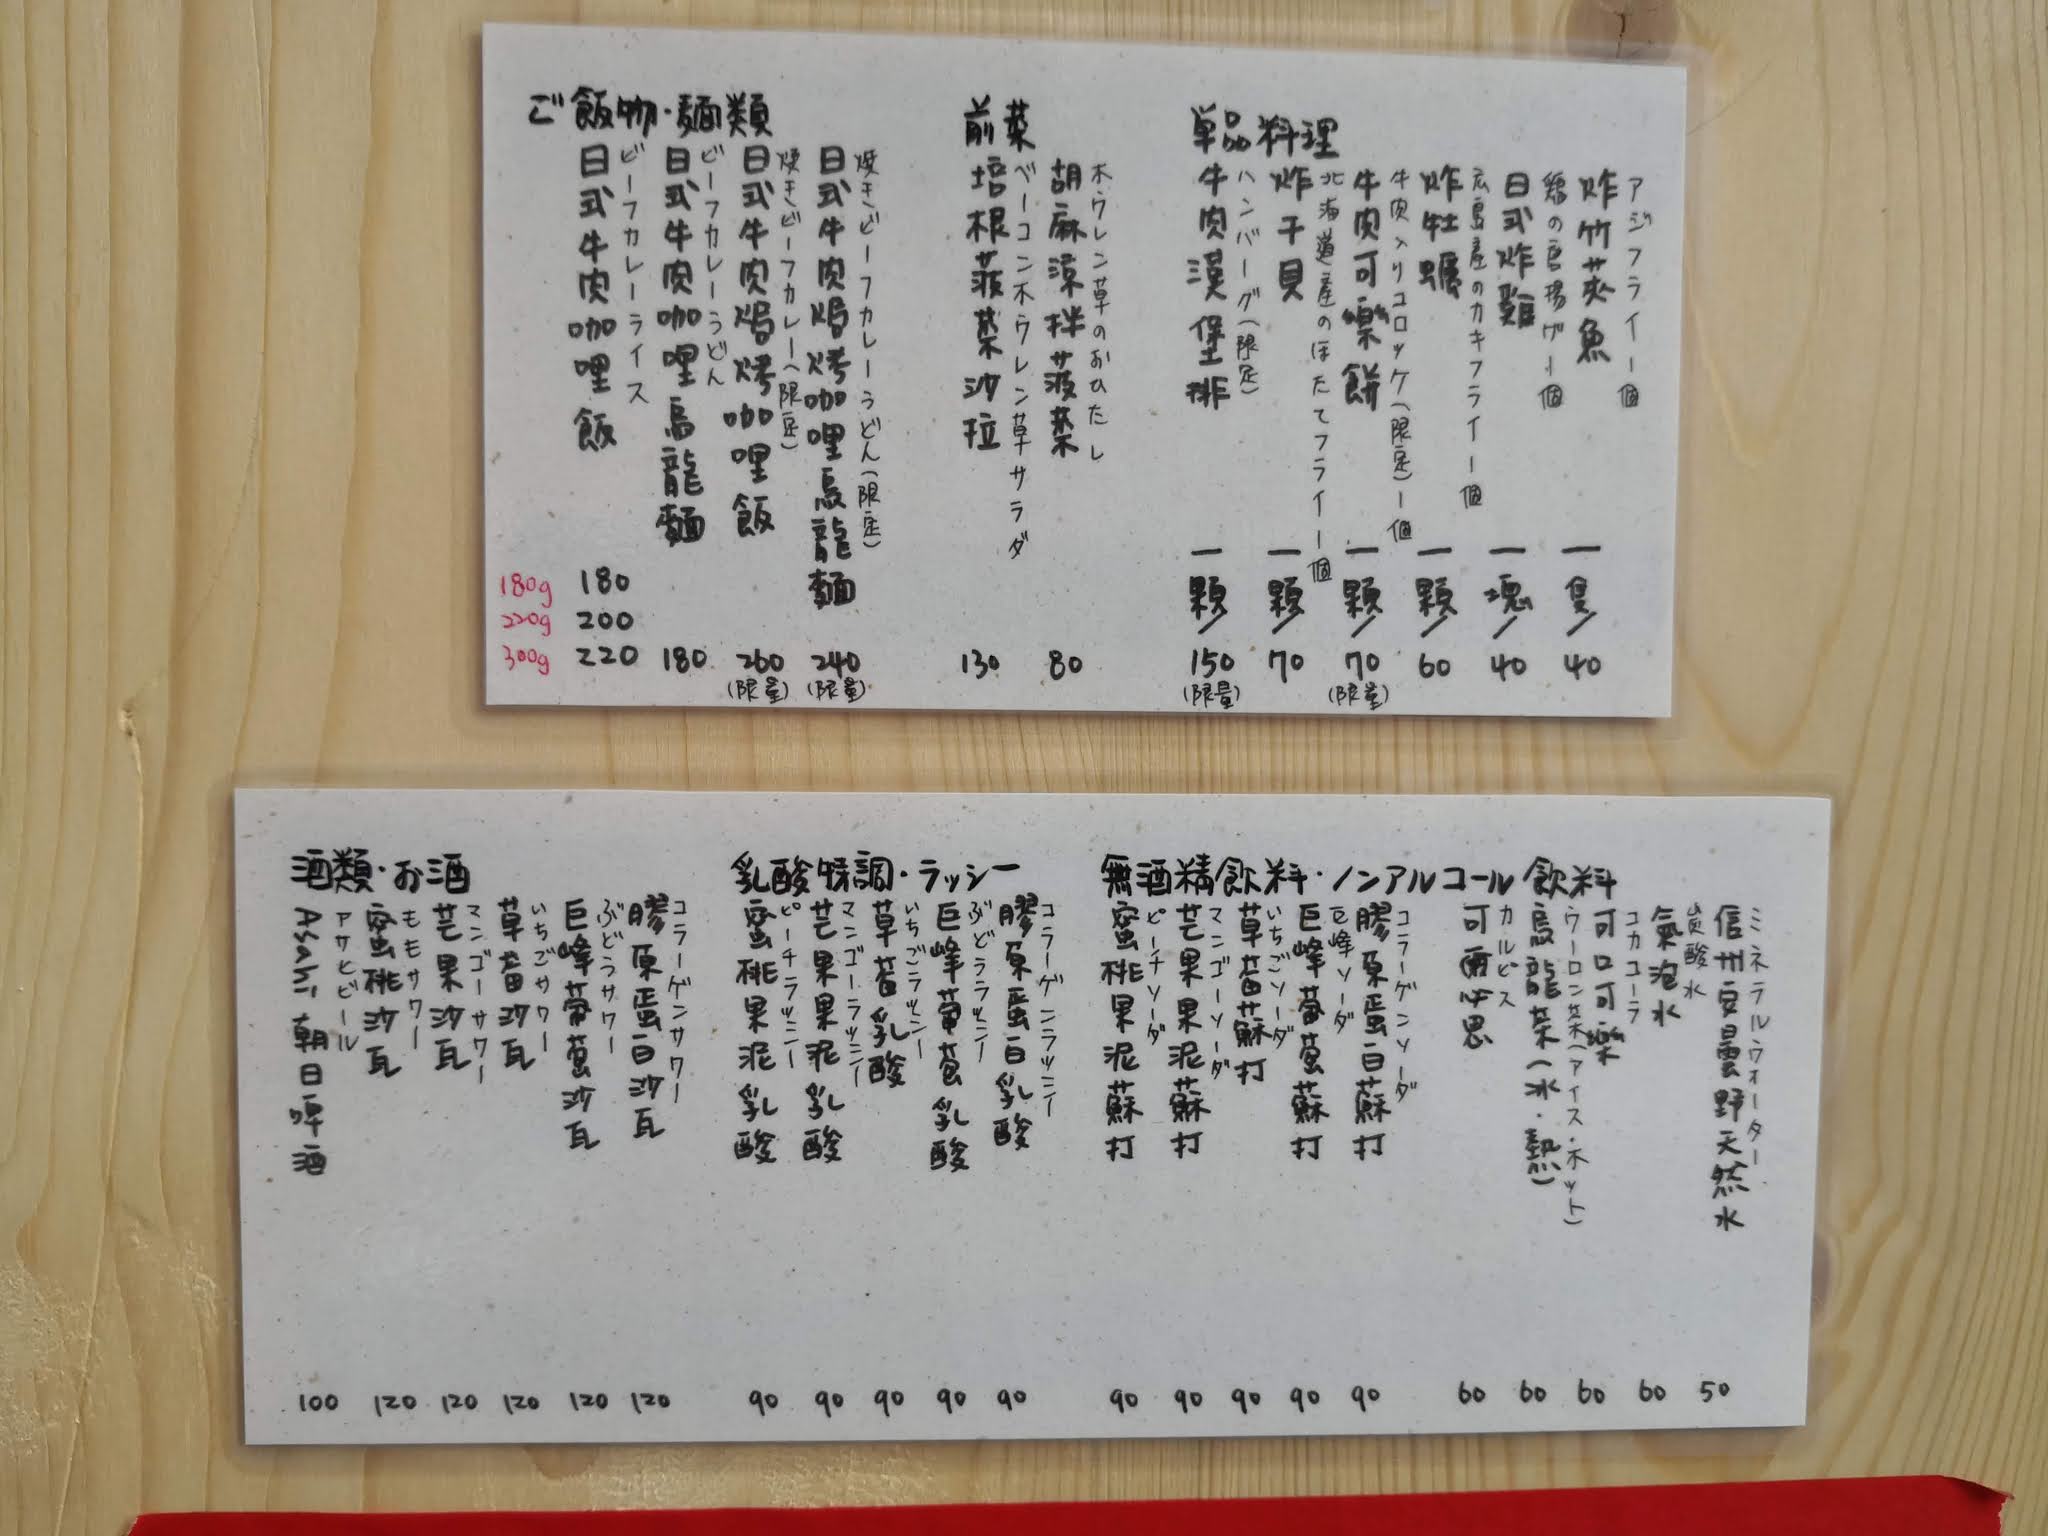 ご飯物・麺類
日式牛肉咖哩飯
ビーフカレーライス
180g 180
220g 200
300g 220
日式牛肉咖哩烏龍麵
ビーフカレーうどん
180
日式牛肉焗烤咖哩飯
焼きビーフカレー(限定)
260
(限量)
日式牛肉焗烤咖哩烏龍麵
焼きビーフカレーうどん(限定)
240
(限量)
前菜
培根菠菜沙拉
ベーコンホウレン草サラダ
130
胡麻涼拌菠菜
ホウレン草のおひたし
80
単品料理
牛肉漢堡排
ハンバーグ(限定)
一顆/150
(限量)
炸干貝
北海道産のほたてフライ一個
一顆/70
牛肉可樂餅
牛肉入りコロッケ(限定)一個
一顆/70
(限量)
炸牡蠣
広島産のカキフライ一個
一顆/60
日式炸雞
鶏の唐揚げ一個
一塊/40
炸竹莢魚
アジフライ一個
一隻/40
酒類・お酒
Asahi朝日啤酒
アサヒビール
100
蜜桃沙瓦
ももサワー
120
芒果沙瓦
マンゴーサワー
120
草莓沙瓦
いちごサワー
120
巨峰葡萄沙瓦
ぶどうサワー
120
膠原蛋白沙瓦
コラーゲンサワー
120
乳酸特調・ラッシー
蜜桃果泥乳酸
ピーチラッシー
90
芒果果泥乳酸
マンゴーラッシー
90
草莓乳酸
いちごラッシー
90
巨峰葡萄乳酸
ぶどうラッシー
90
膠原蛋白乳酸
コラーゲンラッシー
90
無酒精飲料・ノンアルコール飲料
蜜桃果泥蘇打
ピーチソーダ
90
芒果果泥蘇打
マンゴーソーダ
90
草莓蘇打
いちごソーダ
90
巨峰葡萄蘇打
巨峰ソーダ
90
膠原蛋白蘇打
コラーゲンソーダ
90
可爾必思
カルピス
60
烏龍茶(冰・熱)
ウーロン茶(アイス・ホット)
60
可口可樂
コカコーラ
60
氣泡水
炭酸水
60
信州安曇野天然水
ミネラルウォーター
50